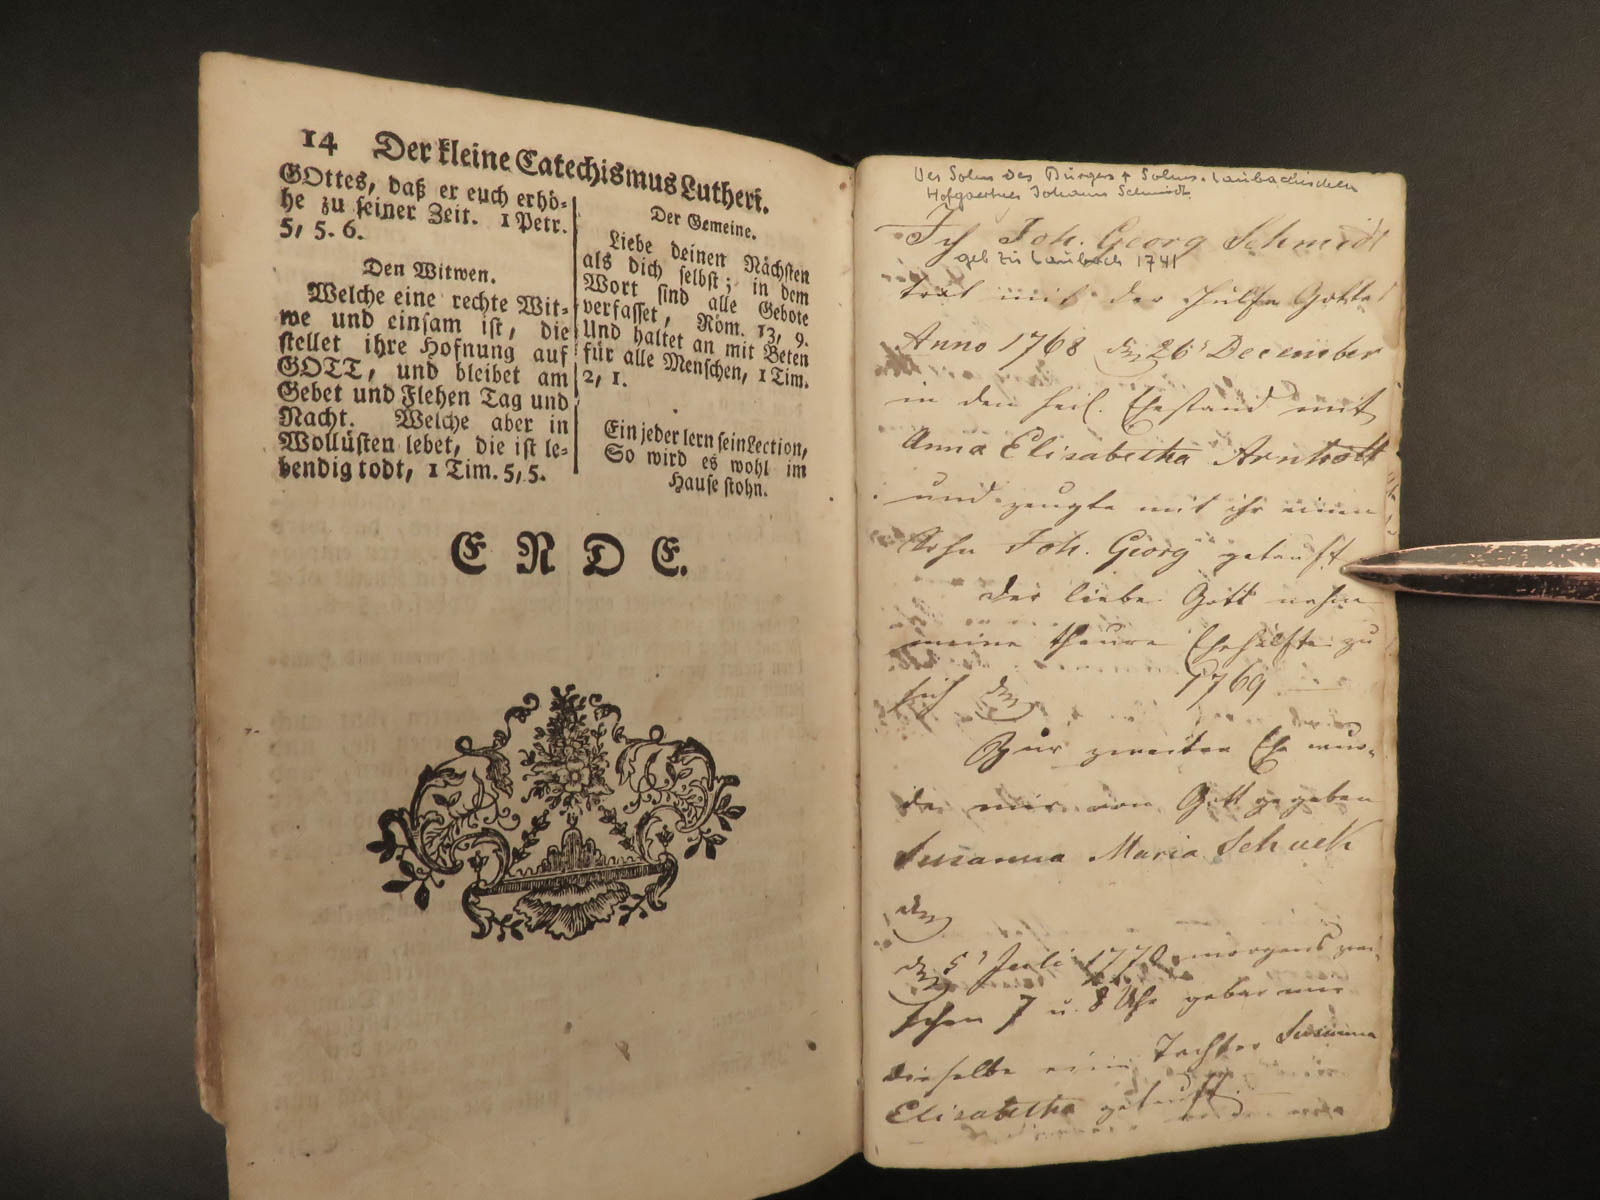 14 Der kleine Catechismus Lutheri.
GOttes, daß er euch erhö-
he zu seiner Zeit. 1 Petr.
5, 5. 6.
Den Witwen.
Welche eine rechte Wit-
we und einsam ist, die
stellet ihre Hofnung auf
GOTT, und bleibet am
Gebet und Flehen Tag und
Nacht. Welche aber in
Wollüsten lebet, die ist le-
bendig todt, 1 Tim. 5, 5.
Der Gemeine.
Liebe deinen Nächsten
als dich selbst; in dem
Wort sind alle Gebote
verfasset, Röm. 13, 9.
Und haltet an mit Beten
für alle Menschen, 1 Tim.
2, 1.
Ein jeder lern sein Lection,
So wird es wohl im
Hause stohn.
ENDE.
Der Sohn des Bürgers + Solms-Laubachischen
Hofgaertners Johann Schmidt
Ich Joh. Georg Schmidt
geb zu Laubach 1741
trat mit der Hülfe Gottes
Anno 1768 den 26 December
in den heil. Ehestand mit
Anna Elisabetha Arnhott
und zeugte mit ihr einen
Sohn Joh. Georg getauft
Der liebe Gott nahm
meine theure Ehehälfte zu
sich den 1769
Zur zweiten Ehe wur-
de mir von Gott gegeben
Susanna Maria Schuck
den
den 5 Juli 1770 morgens zwi-
schen 7 u. 8 Uhr gebar mir
dieselbe eine Tochter Susanna
Elisabetha getauft